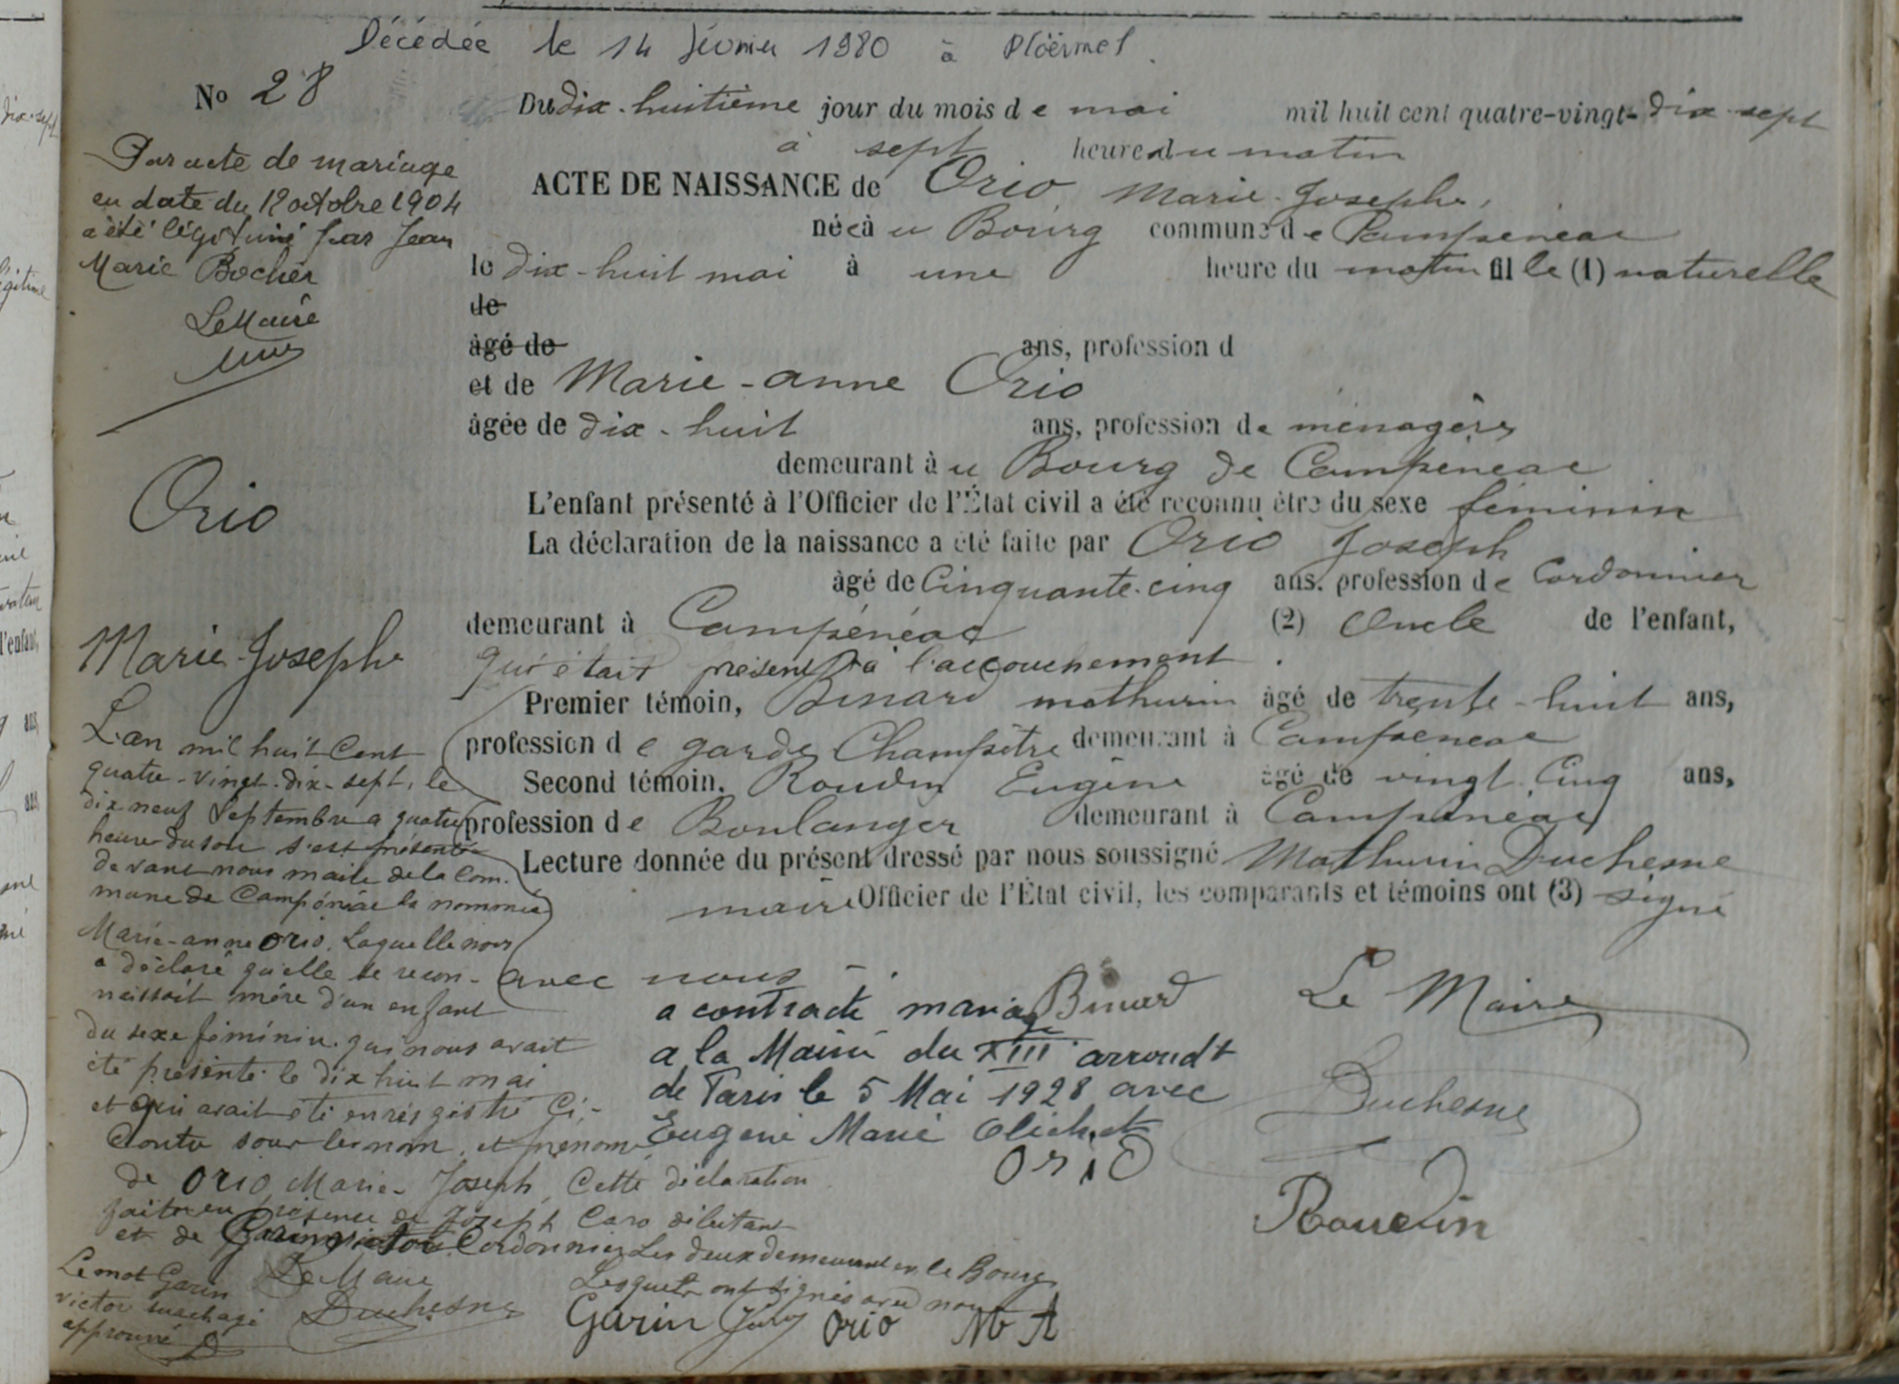 Décédée le 14 février 1980 à Ploërmel
No 28
Du dix-huitième jour du mois de mai mil huit cent quatre-vingt-dix-sept
à sept heures du matin
ACTE DE NAISSANCE de Orio Marie-Josephe,
née à u Bourg commune de Campénéac
le dix-huit mai à une heure du matin fille (1) naturelle
de
âgé de ans, profession d
et de Marie-anne Orio
âgée de dix-huit ans, profession de ménagère
demeurant à u Bourg de Campénéac
L'enfant présenté à l'Officier de l'État civil a été reconnu être du sexe féminin
La déclaration de la naissance a été faite par Orio Joseph
âgé de Cinquante-cinq ans, profession de Cordonnier
demeurant à Campénéac (2) Oncle de l'enfant,
qui était présent à l'accouchement.
Premier témoin, Binard mathurin âgé de trente-huit ans,
profession de garde Champêtre demeurant à Campénéac
Second témoin, Roudin Eugène âgé de vingt-cinq ans,
profession de Boulanger demeurant à Campénéac
Lecture donnée du présent dressé par nous soussigné Mathurin Duchesne
maire Officier de l'État civil, les comparants et témoins ont (3) signé
avec nous.
Binard
Le Maire
Duchesne
Orio
Roudin
a contracté mariage
a la Mairie du XIII arrondt
de Paris le 5 Mai 1928 avec
Eugène Marie
Par acte de mariage
en date du 12 octobre 1904
a été légitimé par Jean
Marie Bocher
Le Maire
Orio
Marie-Josephe
L'an mil huit Cent
quatre-vingt-dix-sept, le
dix neuf Septembre a quatre
heure du soir s'est présenté
devant nous maire de la Com-
mune de Campénéac la nommée
Marie-anne Orio. Laquelle nous
a déclaré qu'elle se recon-
naissait mère d'un enfant
du sexe féminin qui nous avait
été présenté le dix huit mai
et qui avait été enrégistré Ci-
Contre sous les nom et prénom
de Orio Marie-Joseph, Cette déclaration
faite en présence de Joseph Caro débitant
et de Garin victor Cordonnier Les deux demeurant en le Bourg
Lesquels ont signés avec nous
Le mot Garin
victor surchagé
approuvé
Le Maire
Duchesne
Garin Orio M A